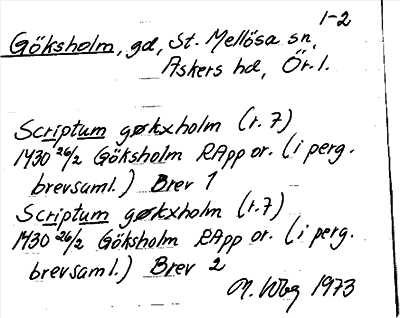 1-2
Göksholm, gd, St. Mellösa sn,
Askers hd, Ör. l.
Scriptum gøkxholm (r. 7)
1430 26/2 Göksholm RApp or. (i perg.
brevsaml.) Brev 1
Scriptum gørkxholm (r. 7)
1430 26/2 Göksholm RApp or. (i perg.
brevsaml.) Brev 2
M. Wbg 1973